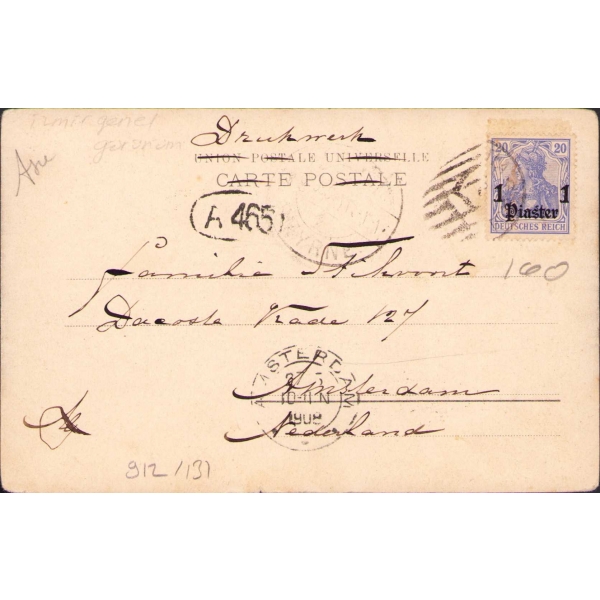 izmir genel
görünüm
Druckwerk
UNION POSTALE UNIVERSELLE
CARTE POSTALE
A 465
20 20
1 1
Piaster
DEUTSCHES REICH
160
Familie
Dacosta Kade 127
AMSTERDAM
10-11 N
1908
Amsterdam
Nederland
912/131